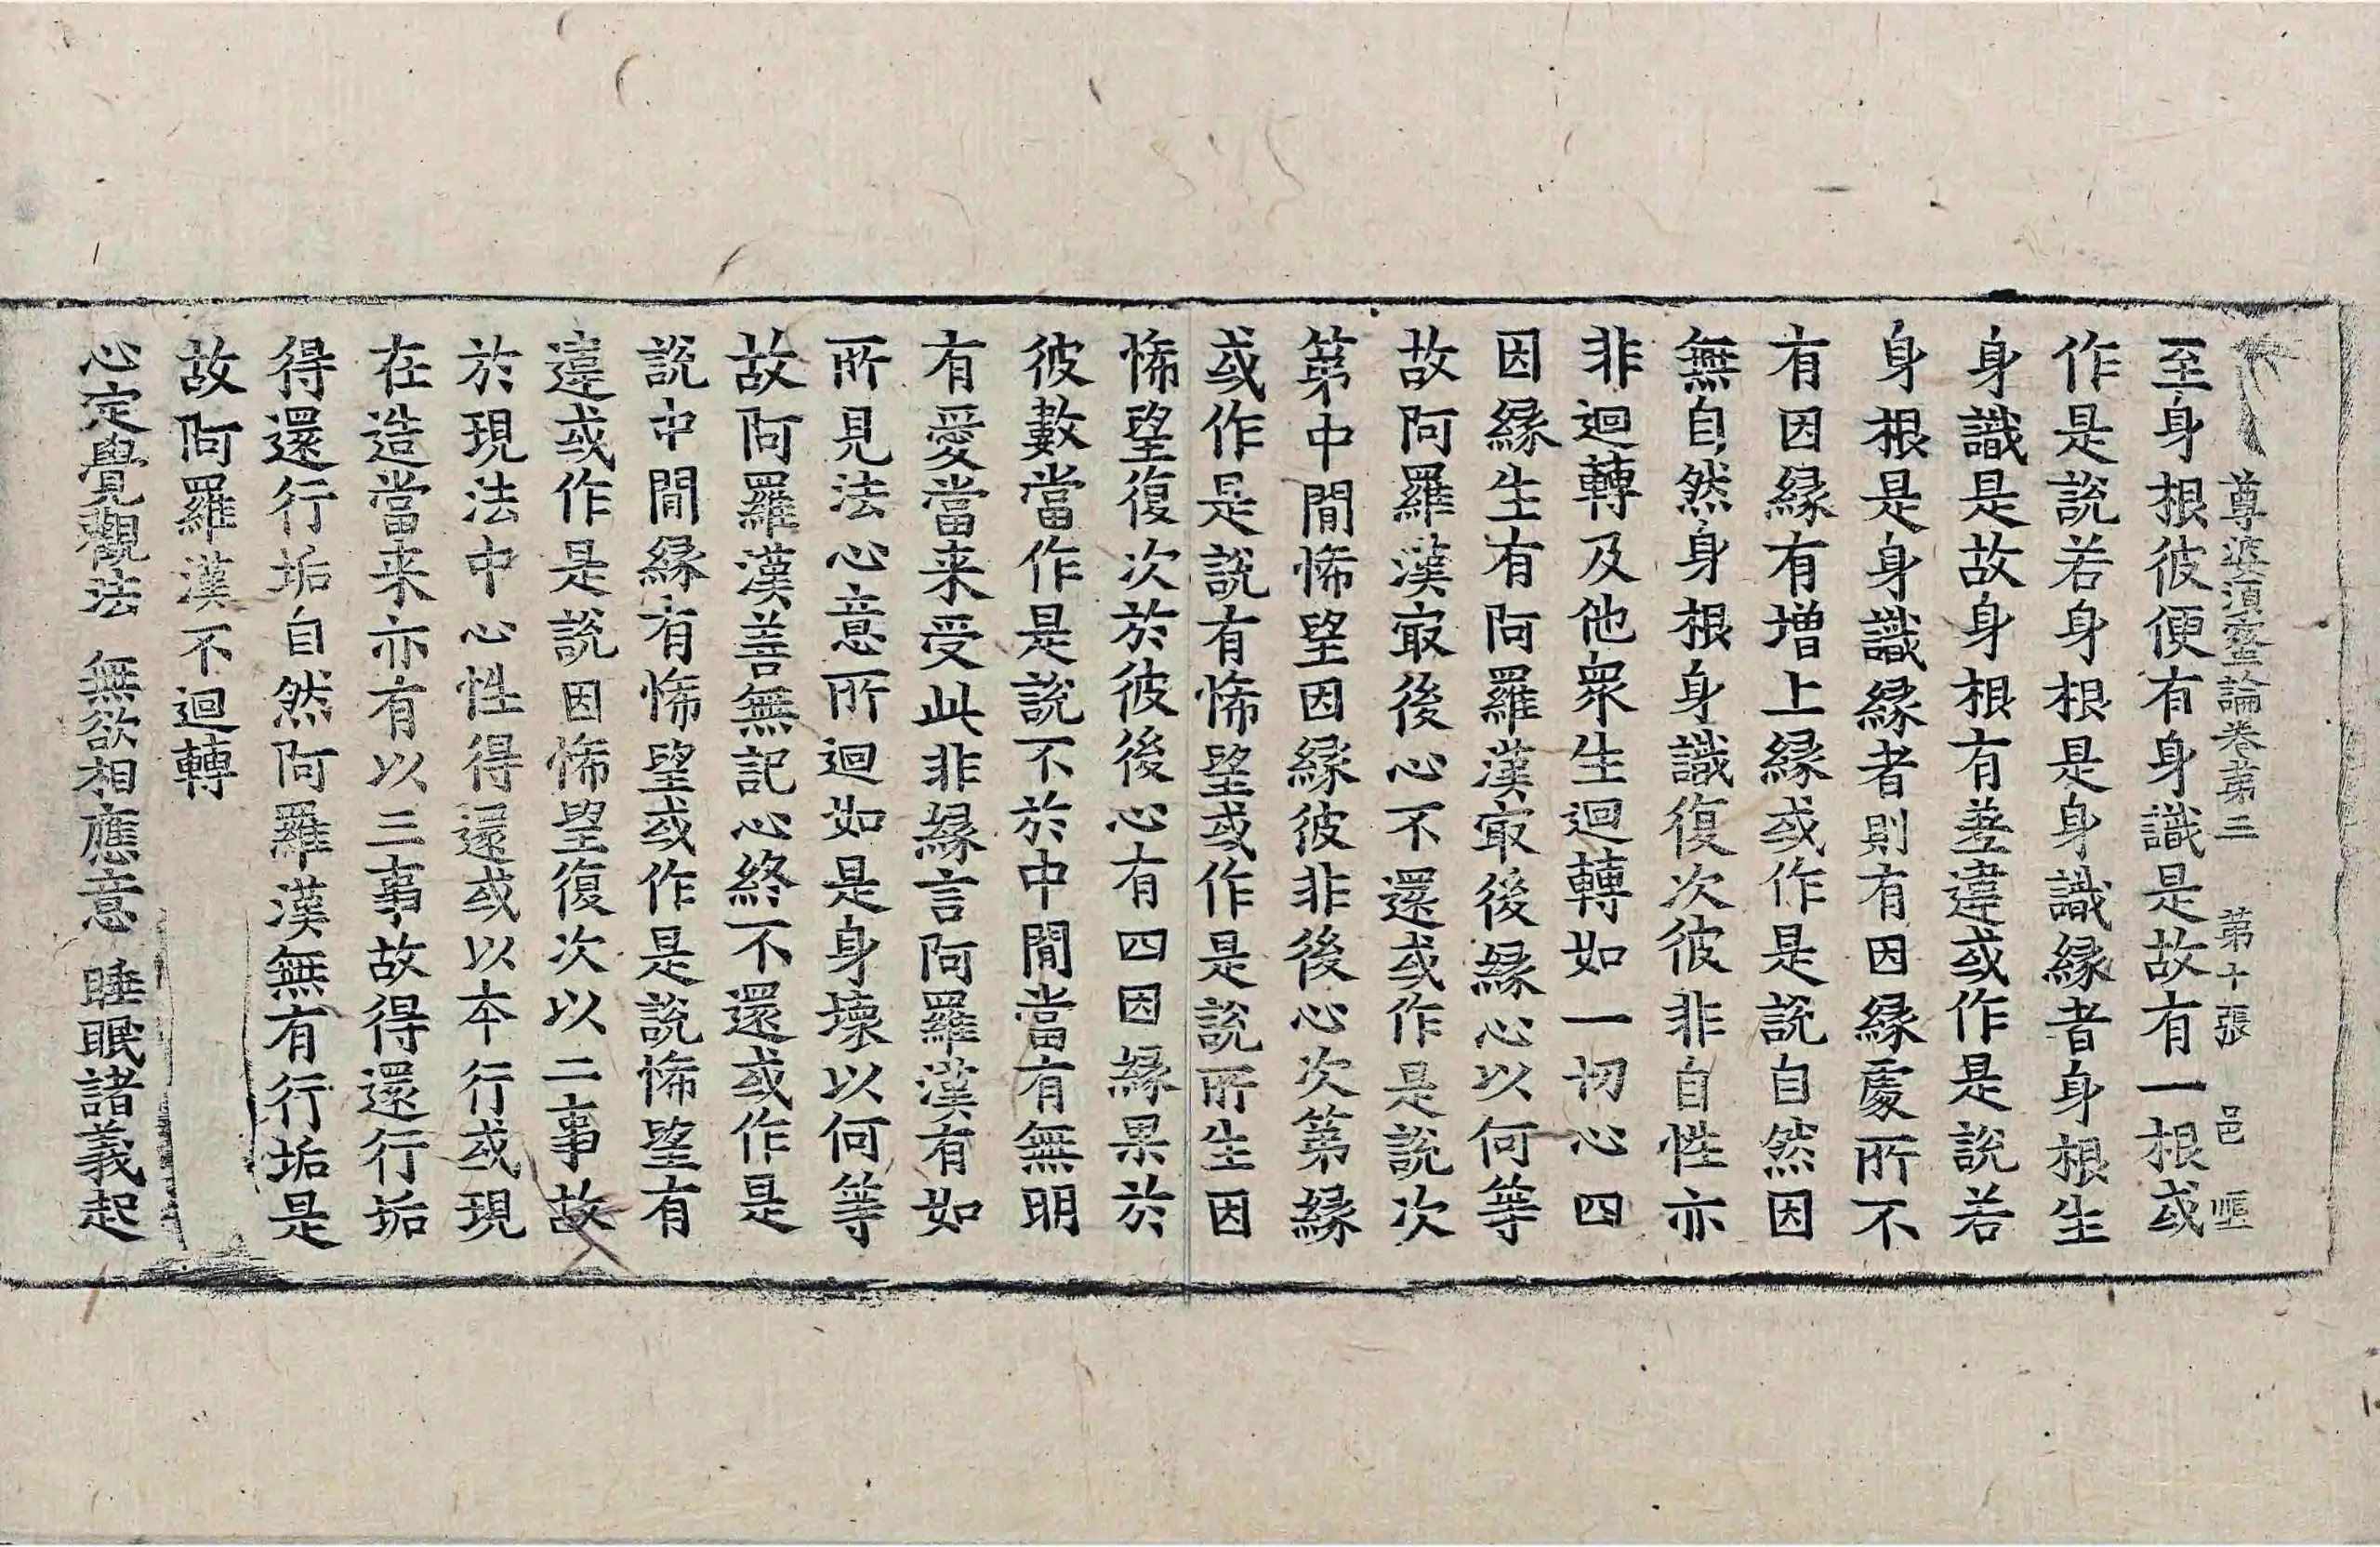 尊婆須蜜論卷第二 第十張 邑
至身根彼便有身識是故有一根或
作是説若身根是身識縁者身根生
身識是故身根有差違或作是説若
身根是身識縁者則有因縁處所不
有因縁有增上縁或作是説自然因
無自然身根身識復次彼非自性亦
非迴轉及他衆生迴轉如一切心四
因縁生有阿羅漢㝡後縁心以何等
故阿羅漢㝡後心不還或作是説次
第中間悕望因縁彼非後心次第縁
或作是説有悕望或作是説所生因
悕望復次於彼後心有四因縁果於
彼數當作是説不於中間當有無明
有愛當来受此非縁言阿羅漢有如
所見法心意所迴如是身壞以何等
故阿羅漢善無記心終不還或作是
説中間縁有悕望或作是説悕望有
違或作是説因悕望復次以二事故
於現法中心性得還或以本行或現
在造當来亦有以三事故得還行垢
得還行垢自然阿羅漢無有行垢是
故阿羅漢不迴轉
心定覺觀法 無欲相應意 睡眠諸義起